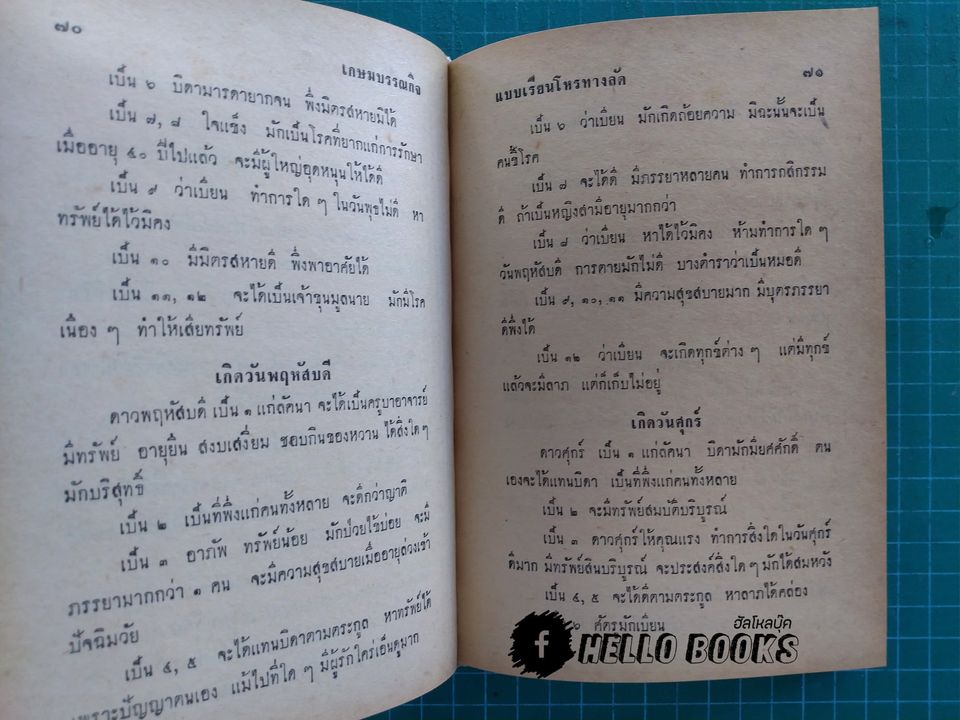 ๗๐
เกษมบรรณกิจ
เป็น ๖ บิดามารดายากจน พึ่งมิตรสหายมิได้
เป็น ๗, ๘ ใจแข็ง มักเป็นโรคที่ยากแก่การรักษา
เมื่ออายุ ๔๐ ปีไปแล้ว จะมีผู้ใหญ่อุดหนุนให้ได้ดี
เป็น ๙ ว่าเบียน ทำการใด ๆ ในวันพุธไม่ดี หา
ทรัพย์ได้ไว้มิคง
เป็น ๑๐ มีมิตรสหายดี พึ่งพาอาศัยได้
เป็น ๑๑, ๑๒ จะได้เป็นเจ้าขุนมูลนาย มักมีโรค
เนือง ๆ ทำให้เสียทรัพย์
เกิดวันพฤหัสบดี
ดาวพฤหัสบดี เป็น ๑ แก่ลัคนา จะได้เป็นครูบาอาจารย์
มีทรัพย์ อายุยืน สงบเสงี่ยม ชอบกินของหวาน ได้สิ่งใด ๆ
มักบริสุทธิ์
เป็น ๒ เป็นที่พึ่งแก่คนทั้งหลาย จะดีกว่าญาติ
เป็น ๓ อาภัพ ทรัพย์น้อย มักป่วยไข้บ่อย จะมี
ภรรยามากกว่า ๑ คน จะมีความสุขสบายเมื่ออายุล่วงเข้า
ปัจฉิมวัย
เป็น ๔, ๕ จะได้แทนบิดาตามตระกูล หาทรัพย์ได้
เพราะปัญญาตนเอง แม้ไปที่ใด ๆ มีผู้รักใคร่เอ็นดูมาก
แบบเรียนโหรทางลัด
๗๑
เป็น ๖ ว่าเบียน มักเกิดถ้อยความ มิฉะนั้นจะเป็น
คนขี้โรค
เป็น ๘ จะได้ดี มีภรรยาหลายคน ทำการกสิกรรม
ดี ถ้าเป็นหญิงสามีอายุมากกว่า
เป็น ๘ ว่าเบียน หาได้ไว้มิคง ห้ามทำการใด ๆ
วันพฤหัสบดี การตายมักไม่ดี บางตำราว่าเป็นหมอดี
เป็น ๙, ๑๐, ๑๑ มีความสุขสบายมาก มีบุตรภรรยา
ดีพึ่งได้
เป็น ๑๒ ว่าเบียน จะเกิดทุกข์ต่าง ๆ แต่มีทุกข์
แล้วจะมีลาภ แต่ก็เก็บไม่อยู่
เกิดวันศุกร์
ดาวศุกร์ เป็น ๑ แก่ลัคนา บิดามักมียศศักดิ์ ตน
เองจะได้แทนบิดา เป็นที่พึ่งแก่คนทั้งหลาย
เป็น ๒ จะมีทรัพย์สมบัติบริบูรณ์
เป็น ๓ ดาวศุกร์ให้คุณแรง ทำการสิ่งใดในวันศุกร์
ดีมาก มีทรัพย์สินบริบูรณ์ จะประสงค์สิ่งใด ๆ มักได้สมหวัง
เป็น ๔, ๕ จะได้ดีตามตระกูล หาลาภได้คล่อง
๖ ศัตรูมักเบียน
ฮัลโหลบุ๊ค
f HELLO BOOKS